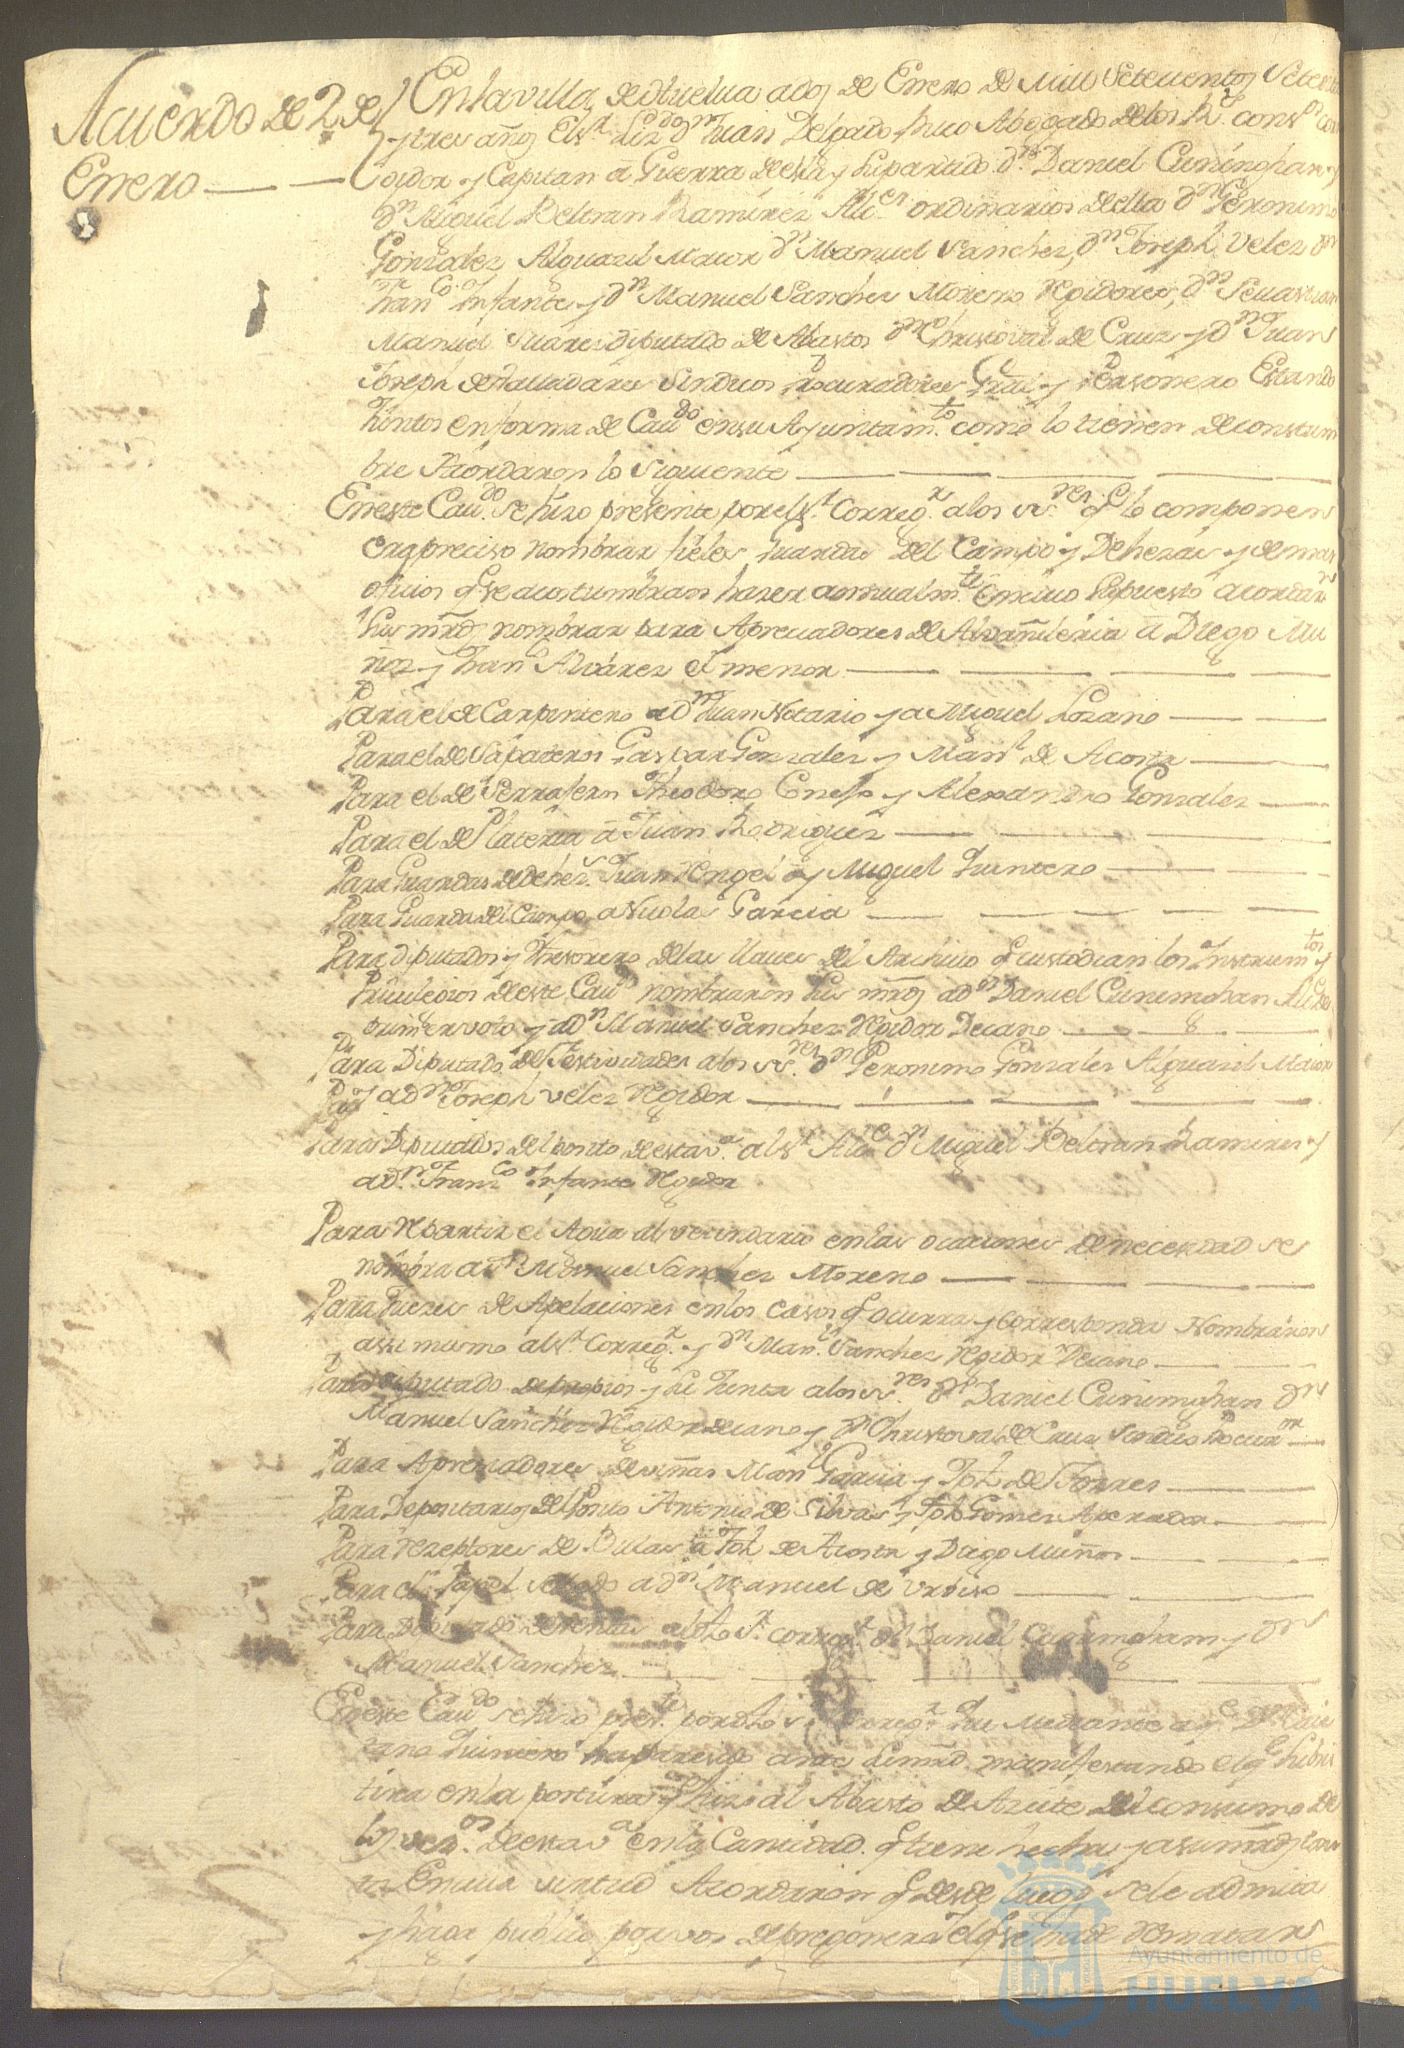 Acuerdo de 2 de
Enero
En la villa de Huelua a dos de Enero de Mill Setecientos Setenta
y tres años El Sr. Lizdo. Dn Juan Delgado Abogado de los Rs. cons. Corre
gidor y Capitan a Guerra de ella y su partido dn. Daniel Cuningham y
dn Miguel Beltran Ramirez Alces ordinarios de ella dn Geronimo
Gonzales Alguasil Maior dn Manuel Sanches, dn Joseph Velez dn
Franco. Infante y dn Manuel Sanches Moreno Rexidores, dn Seuastian
Manuel Suares diputado de Abastos dn Christoval de Cruz y dn Juan
Joseph de Sindicos Procuradores Gral y Personero Estando
Juntos en forma de Caudo. en su Ayuntamto. como lo tienen de costum
bre Acordaron lo siguiente
En este Caudo. se hizo presente por el Sr. Correxr. a los Sres. q lo componen
era preciso nombrar fieles guardas del Campo y Dehezas y demas
oficios q se acostumbran hazer anualmte. En cuio supuesto acordarn
sus mrds nombrar para Apreciadores de Alvañileria a Diego Mu
ñoz y Franco Alvarez el menor
Para el de Carpintero a dn Juan Notario y a Miguel Lozano
Para el de Sapateros Gaspar Gonzales y Manl. de Acosta
Para el de Serragero Theodoro y Alexandro Gonzales
Para el de Plateria a Juan Rodriguez
Para Guardas de dehes. Juan Rengel y Miguel Quintero
Para Guarda del Campo a Nicolas Garcia
Para diputados y thesorero de las llaues del Archiuo q custodian los Instrumtos y
Priuilegios de este Caudo nombraron sus mrds a dn Daniel Cuningham Alcde
primer voto y a dn Manuel Sanchez Rexidor Decano
Para Diputado de Festiuidades a los Sres dn Geronimo Gonzales Alguasil Maior
y a dn Joseph Velez Rexidor
Para Diputados del posito de esta va. al Sr. Alce dn Miguel Beltran Ramires y
a dn. Franco Infante Rexidor
Para Repartir el Agua al vecindario en las ocaciones de necesidad se
nombra a dn Manuel Sanches Moreno
Para Juezes de Apelaciones en los casos q ocurra y corresponda Nombraron
assi mismo al Sr. Correxr. y dn Manl. Sanchez Rexidor Decano
Para diputado de propios y su Junta a los Sres dn Daniel Cuningham dn
Manuel Sanchez Rexidor decano y dn Christoval de Cruz Sindico Procuror
Para Apreciadores de viñas Manl Garcia y Jph de Torres
Para Depositarios del Posito Antonio de Silva y Jph Gomez Aperador
Para Rezeptores de Bulas a Jph de Acosta y Diego Muños
Para el Papel Sellado a dn Manuel de
Para Diputado de rentas al dho Sr. correxr. dn Daniel Cuningham y dn
Manuel Sanchez
En este Caudo se hizo prete. por dho Sr Correxr. que mediante a q Dn
ano Quintero ha paresido ante su mrd. manifestando el q
en la postura q hizo al Abasto de Azeite del consumo de
los vezos. de esta va en la Cantidad q tiene hecha
En cuia virtud Acordaron q desde luego se le admita
y haga publica por vos de pregonero el q se ha de Rematar
Ayuntamiento de
HUELVA